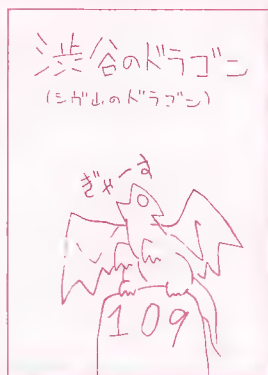 渋谷のドラゴン
(シヴ山のドラゴン)
ぎゃーす
109